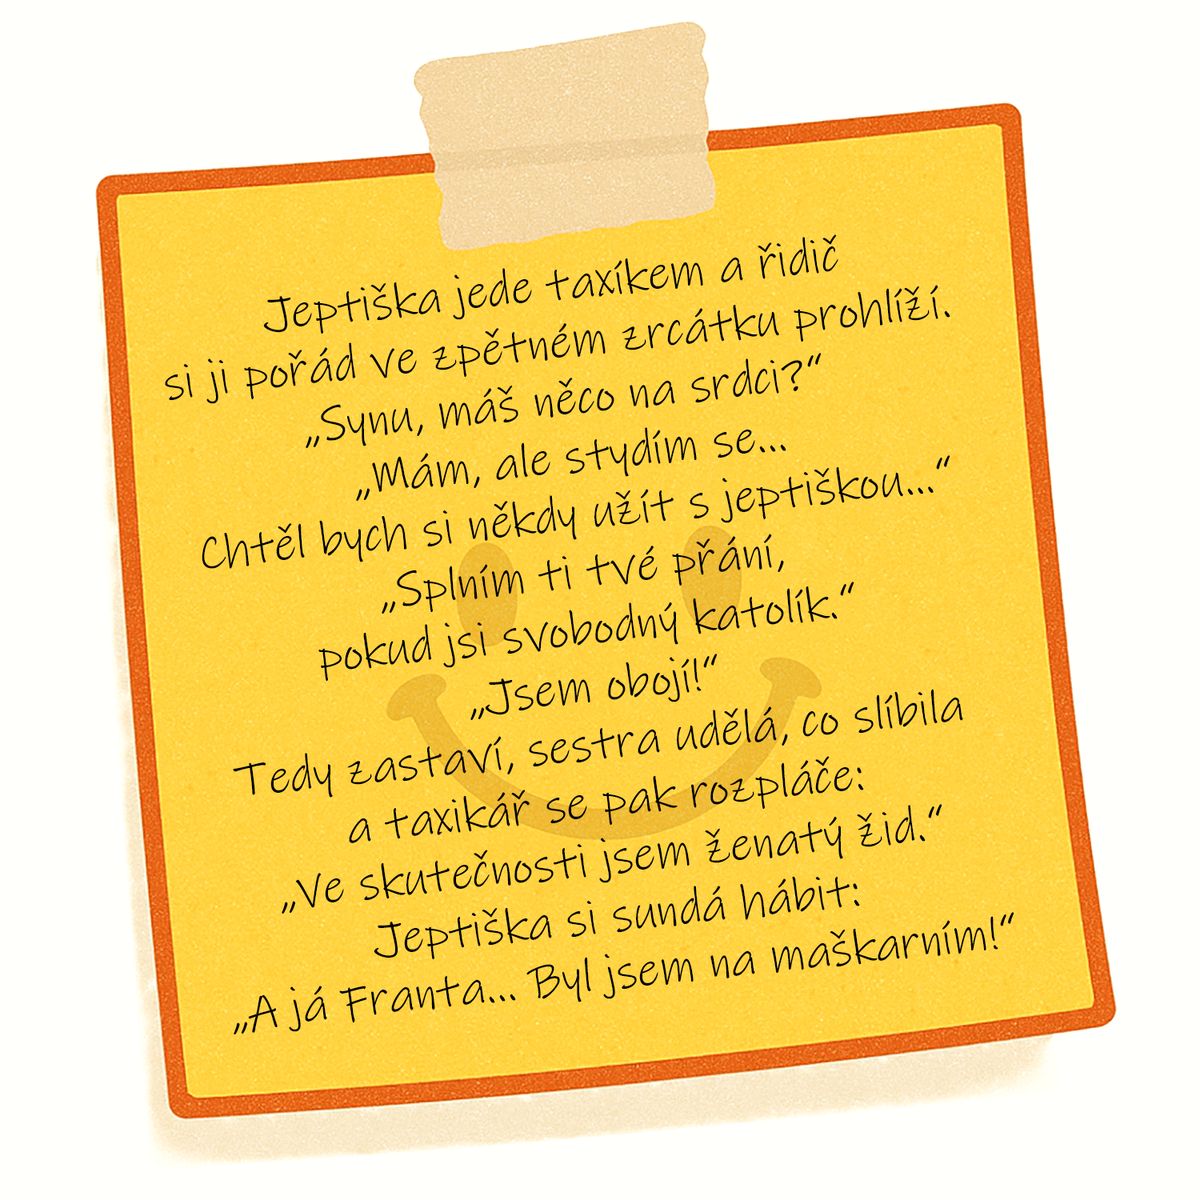 Jeptiška jede taxíkem a řidič
si ji pořád ve zpětném zrcátku prohlíží.
„Synu, máš něco na srdci?“
„Mám, ale stydím se...
Chtěl bych si někdy užít s jeptiškou...“
„Splním ti tvé přání,
pokud jsi svobodný katolík.“
„Jsem obojí!“
Tedy zastaví, sestra udělá, co slíbila
a taxikář se pak rozpláče:
„Ve skutečnosti jsem ženatý žid.“
Jeptiška si sundá hábit:
„A já Franta... Byl jsem na maškarním!“